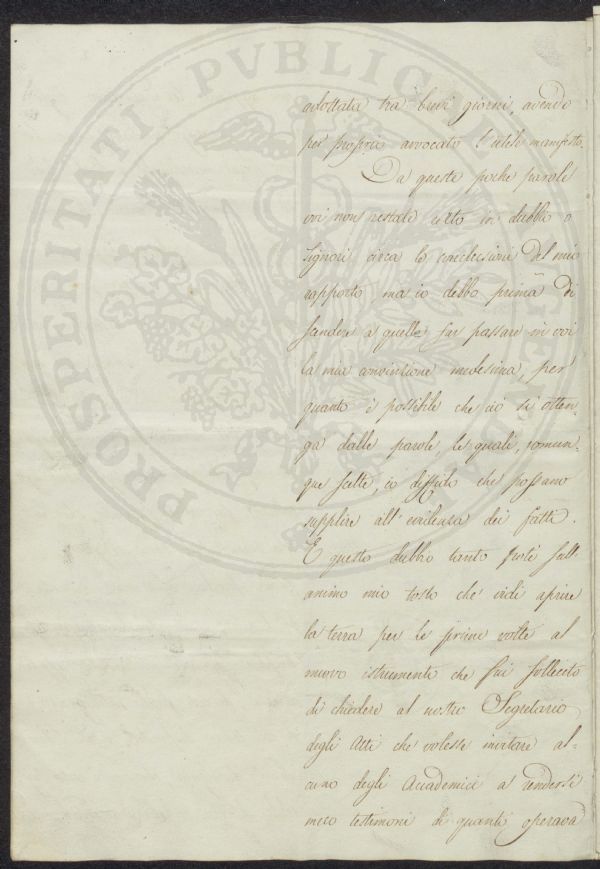 PROSPERITATI PVBLICAE
adottata tra brevi giorni, avendo
per proprio avvocato l'utile manifesto.
Da queste poche parole
voi non restate certo in dubbio o
Signori circa le conclusioni del mio
rapporto, ma io debbo prima di
scendere a quelle far passare in voi
la mia convinzione medesima, per
quanto è possibile che ciò si otten-
ga dalle parole, le quali, comun-
que scelte, è difficile che possano
supplire all'evidenza dei fatti.
E questo dubbio tanto potè sull'
animo mio tosto che vidi aprire
la terra per le prime volte al
nuovo istrumento che fui sollecito
di chiedere al nostro Segretario
degli Atti che volesse invitare al-
cuno degli Accademici a rendersi
meco testimoni di quanto operava